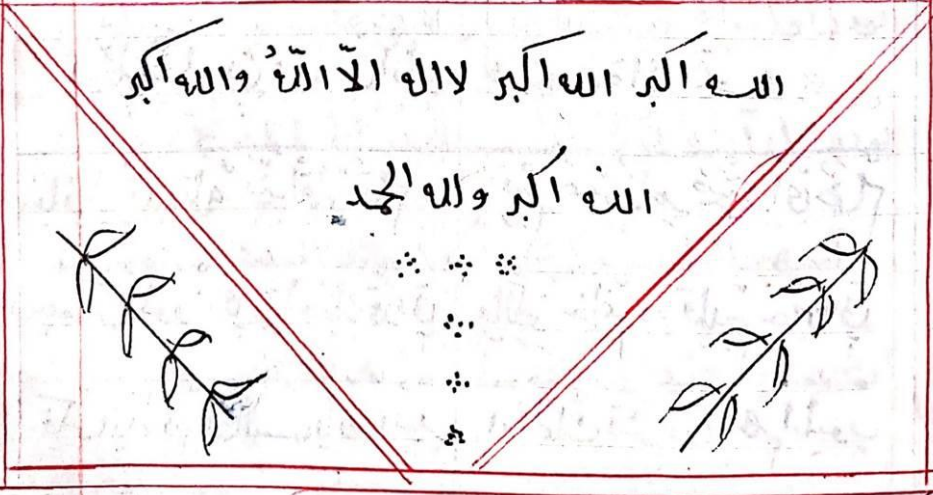 الله اكبر الله اكبر لا اله الّا اللّهُ والله اكبر
الله اكبر ولله الحمد